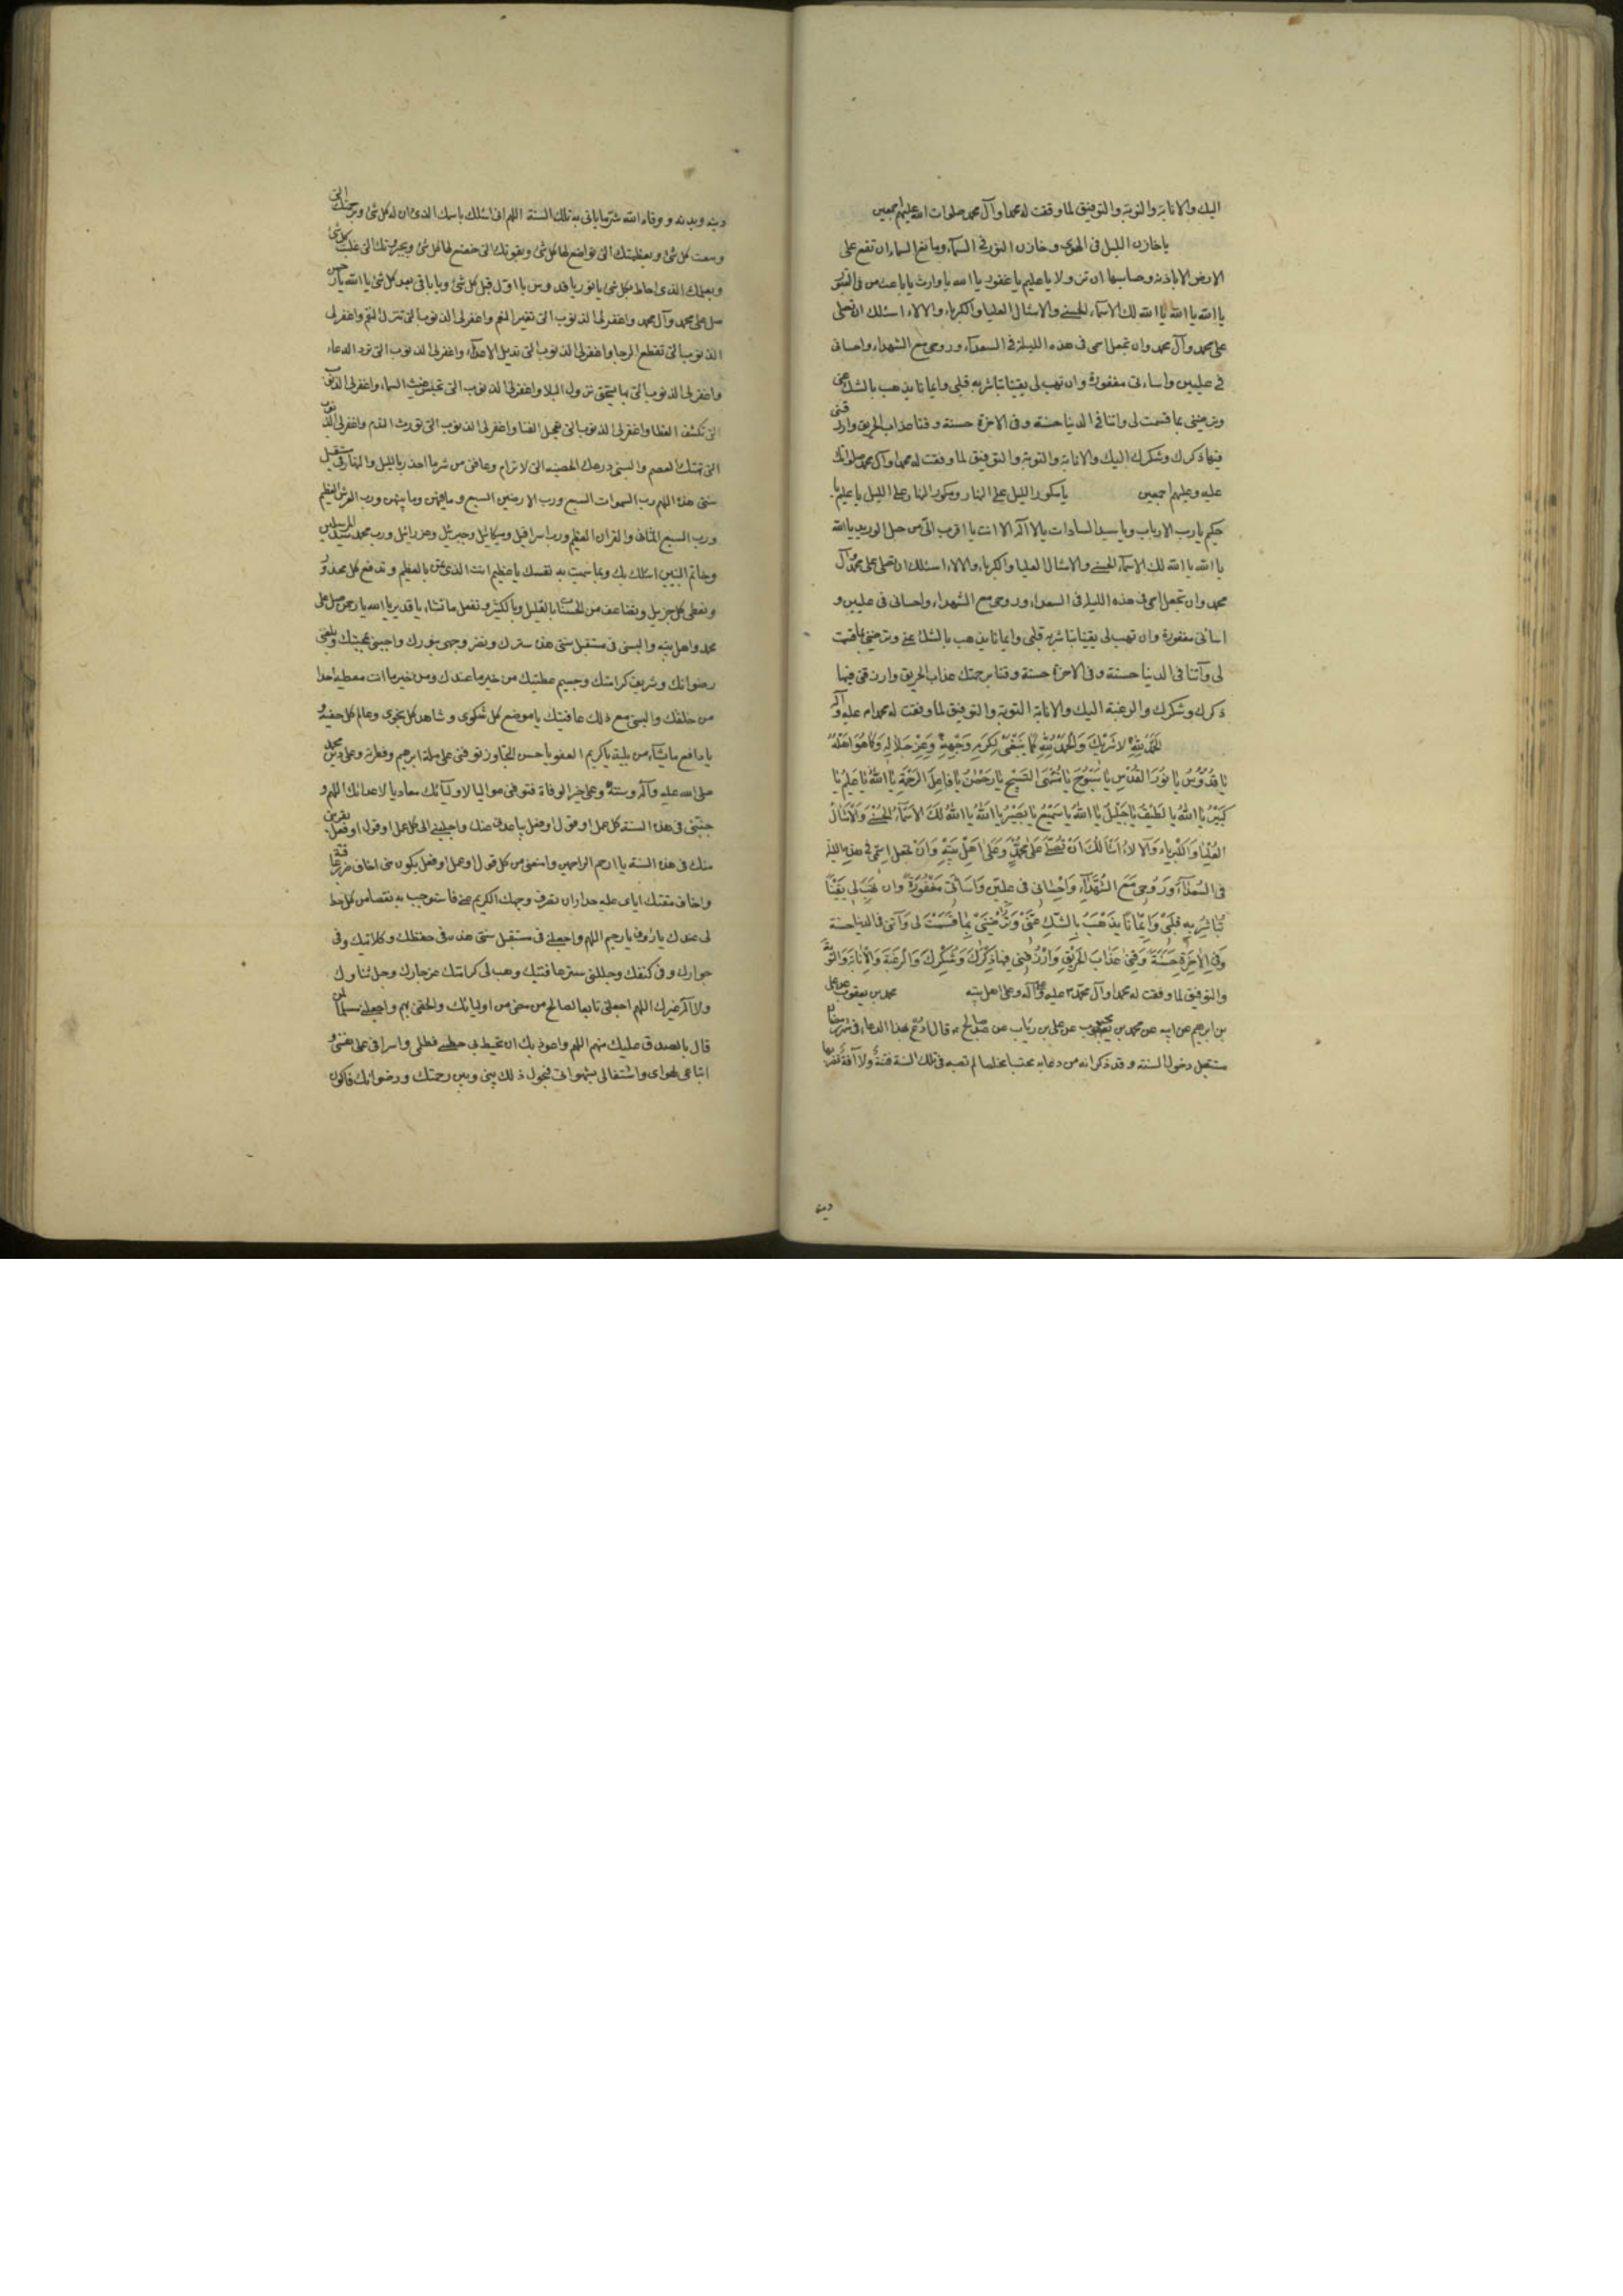 اليك والانابة والتوبة والتوفيق لما وفقت له محمدا وآل محمد صلوات الله عليهم اجمعين
يا خازن الليل في الهوى وخازن النور في السماء ومانع السماء ان تقع على
الارض الا باذنه وحابسها ان تزولا يا عليم يا غفور يا الله يا وارث يا باعث من في القبور
يا الله يا الله يا الله لك الاسماء الحسنى والامثال العليا والكبرياء والالاء اسئلك ان تصلى
على محمد وآل محمد وان تجعل اسمى فى هذه الليلة في السعداء وروحى مع الشهداء واحسانى
في عليين واساءتى مغفورة وان تهب لى يقينا تباشر به قلبى وايمانا يذهب بالشك عنى
وترضينى بما قسمت لى واتنا في الدنيا حسنة وفى الاخرة حسنة وقنا عذاب الحريق وارزقنى
فيها ذكرك وشكرك اليك والانابة والتوبة والتوفيق لما وفقت له محمدا وآل محمد صلواتك
عليه وعليهم اجمعين يا مكور الليل على النهار ومكور النهار على الليل يا عليم يا
حكيم يا رب الارباب ويا سيد السادات يا لا اله الا انت يا اقرب الى من حبل الوريد يا الله
يا الله يا الله لك الاسماء الحسنى والامثال العليا والكبرياء والالاء اسئلك ان تصلى على محمد وآل
محمد وان تجعل اسمى فى هذه الليلة فى السعداء وروحى مع الشهداء واحسانى فى عليين و
اسائتى مغفورة وان تهب لى يقينا تباشر به قلبى وايمانا يذهب بالشك عنى وترضينى بما قسمت
لى وآتنا فى الدنيا حسنة وفى الاخرة حسنة وقنا برحمتك عذاب الحريق وارزقنى فيها
ذكرك وشكرك والرغبة اليك والانابة التوبة والتوفيق لما وفقت له محمدا م عليه وآله
الحمد لله لا شريك والحمد لله كما ينبغى لكرم وجهه وعز جلاله وكما هو اهله
يا قدوس يا نور القدس يا سبوح يا منتهى التسبيح يا رحمن يا فاعل الرحمة يا الله يا عليم يا
كبير يا الله يا لطيف يا جليل يا الله يا سميع يا بصير يا الله يا الله لك الاسماء الحسنى والامثال
العليا والكبرياء والالاء اسالك ان تصلى على محمد وعلى اهل بيته وان تجعل اسمى فى هذه الليلة
فى السعداء وروحى مع الشهداء واحسانى فى عليين واساتى مغفورة وان تهب لى يقينا
تباشر به قلبى وايمانا يذهب بالشك عنى وترضينى بما قسمت لى وآتنى فى الدنيا حسنة
وفي الاخرة حسنة وقنى عذاب الحريق وارزقنى فيها ذكرك وشكرك والرغبة والانابة والتوبة
والتوفيق لما وفقت له محمدا وآل محمد م عليه وعلى آله وعلى اهل بيته محمد بن يعقوب عن على
بن ابرهيم عن ابيه عن محبوب عن على بن رئاب عن عبد صالح م قال ادع بهذا الدعاء فى شهر رمضان
مستقبل دخول السنة وقد ذكر انه من دعا به محتسبا مخلصا لم تصبه فى تلك السنة فتنة ولا آفة تضر بها
دينه
دينه وبدنه ووقاه الله شر ما ياتى به تلك السنة اللهم انى اسئلك باسمك الذى دان له كل شئ وبرحمتك التى
وسعت كل شئ وبعظمتك التى تواضع لها كل شئ وبقوتك التى خضع لها كل شئ وبجبروتك التى غلبت كل شئ
وبعلمك الذى احاط بكل شئ يا نور يا قدوس يا اول قبل كل شئ ويا باقى بعد كل شئ يا الله يا رحمن
صل على محمد وآل محمد واغفر لى الذنوب التى تغير النعم واغفر لى الذنوب التى تنزل النقم واغفر لى
الذنوب التى تقطع الرجا واغفر لى الذنوب التى تديل الاعداء واغفر لى الذنوب التى ترد الدعاء
واغفر لى الذنوب التى بها يستحق نزول البلا واغفر لى الذنوب التى تحبس غيث السماء واغفر لى الذنوب
التى تكشف الغطا واغفر لى الذنوب التى تعجل الفنا واغفر لى الذنوب التى تورث الندم واغفر لى الذنوب
التى تهتك العصم والبسنى درعك الحصينه التى لا ترام وعافنى من شر ما احذر بالليل والنهار فى مستقبل
سنتى هذه اللهم رب السموات السبع ورب الارضين السبع وما فيهن وما بينهن ورب العرش العظيم
ورب السبع المثانى والقران العظيم ورب اسرافيل وميكائيل وجبرئيل وعزرائيل ورب محمد سيد المرسلين
وخاتم النبيين اسئلك بك وبما سميت به نفسك يا عظيم انت الذى تمن بالعظيم وتدفع كل محذور
وتعطى كل جزيل وتضاعف من الحسنات بالقليل وبالكثير وتفعل ما تشاء يا قدير يا الله يا رحمن صل على
محمد واهل بيته والبسنى فى مستقبل سنتى هذه سترك ونضر وجهى بنورك واحببنى بمحبتك وبلغنى
رضوانك وشريف كرامتك وجسيم عطيتك من خير ما عندك ومن خير ما انت معطيه احدا
من خلقك والبسنى مع ذلك عافيتك يا موضع كل شكوى وشاهد كل نجوى وعالم كل خفية و
يا دافع ما يشاء من بلية يا كريم العفو يا حسن التجاوز توفنى على ملة ابرهيم وفطرته وعلى دين محمد
صلى الله عليه وآله وسنته وعلى خير الوفاة فتوفنى مواليا لاوليآئك معاديا لاعدائك اللهم و
جنبنى فى هذه السنة كل عمل او قول او فعل يباعدنى منك واجلبنى الى كل عمل او قول او فعل يقربنى
منك فى هذه السنة يا ارحم الراحمين وامنعنى من كل قول او عمل او فعل يكون منى اخاف ضرر عاقبته
واخاف مقتك اياى عليه حذار ان تصرف وجهك الكريم عنى فاستوجب به نقصا من كل حظ
لى عندك يا رؤف يا رحيم اللهم واجعلنى فى مستقبل سنتى هذه فى حفظك وكلائتك وفى
جوارك وفى كنفك وجللنى ستر عافيتك وهب لى كرامتك عز جارك وجل ثناؤك
ولا اله غيرك اللهم اجعلنى تابعا لصالح من مضى من اوليائك والحقنى بهم واجعلنى مسلما لمن
قال بالصدق عليك منهم اللهم واعوذ بك ان تحيط بى خطيئتى وظلمى واسرافى على نفسى و
اتباعى لهواى واشتغالى بشهواتى فيحول ذلك بينى وبين رحمتك ورضوانك فاكون